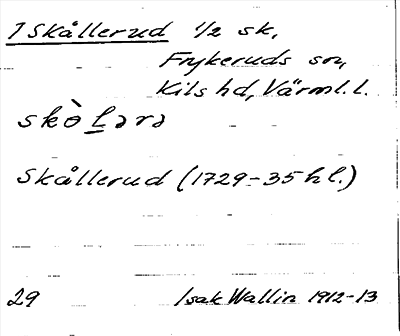 1 Skållerud 1/2 sk,
Frykeruds sn,
Kils hd, Värml. l.
skò̀Lərə
Skållerud (1729-35 hl.)
29 Isak Wallin 1912-13